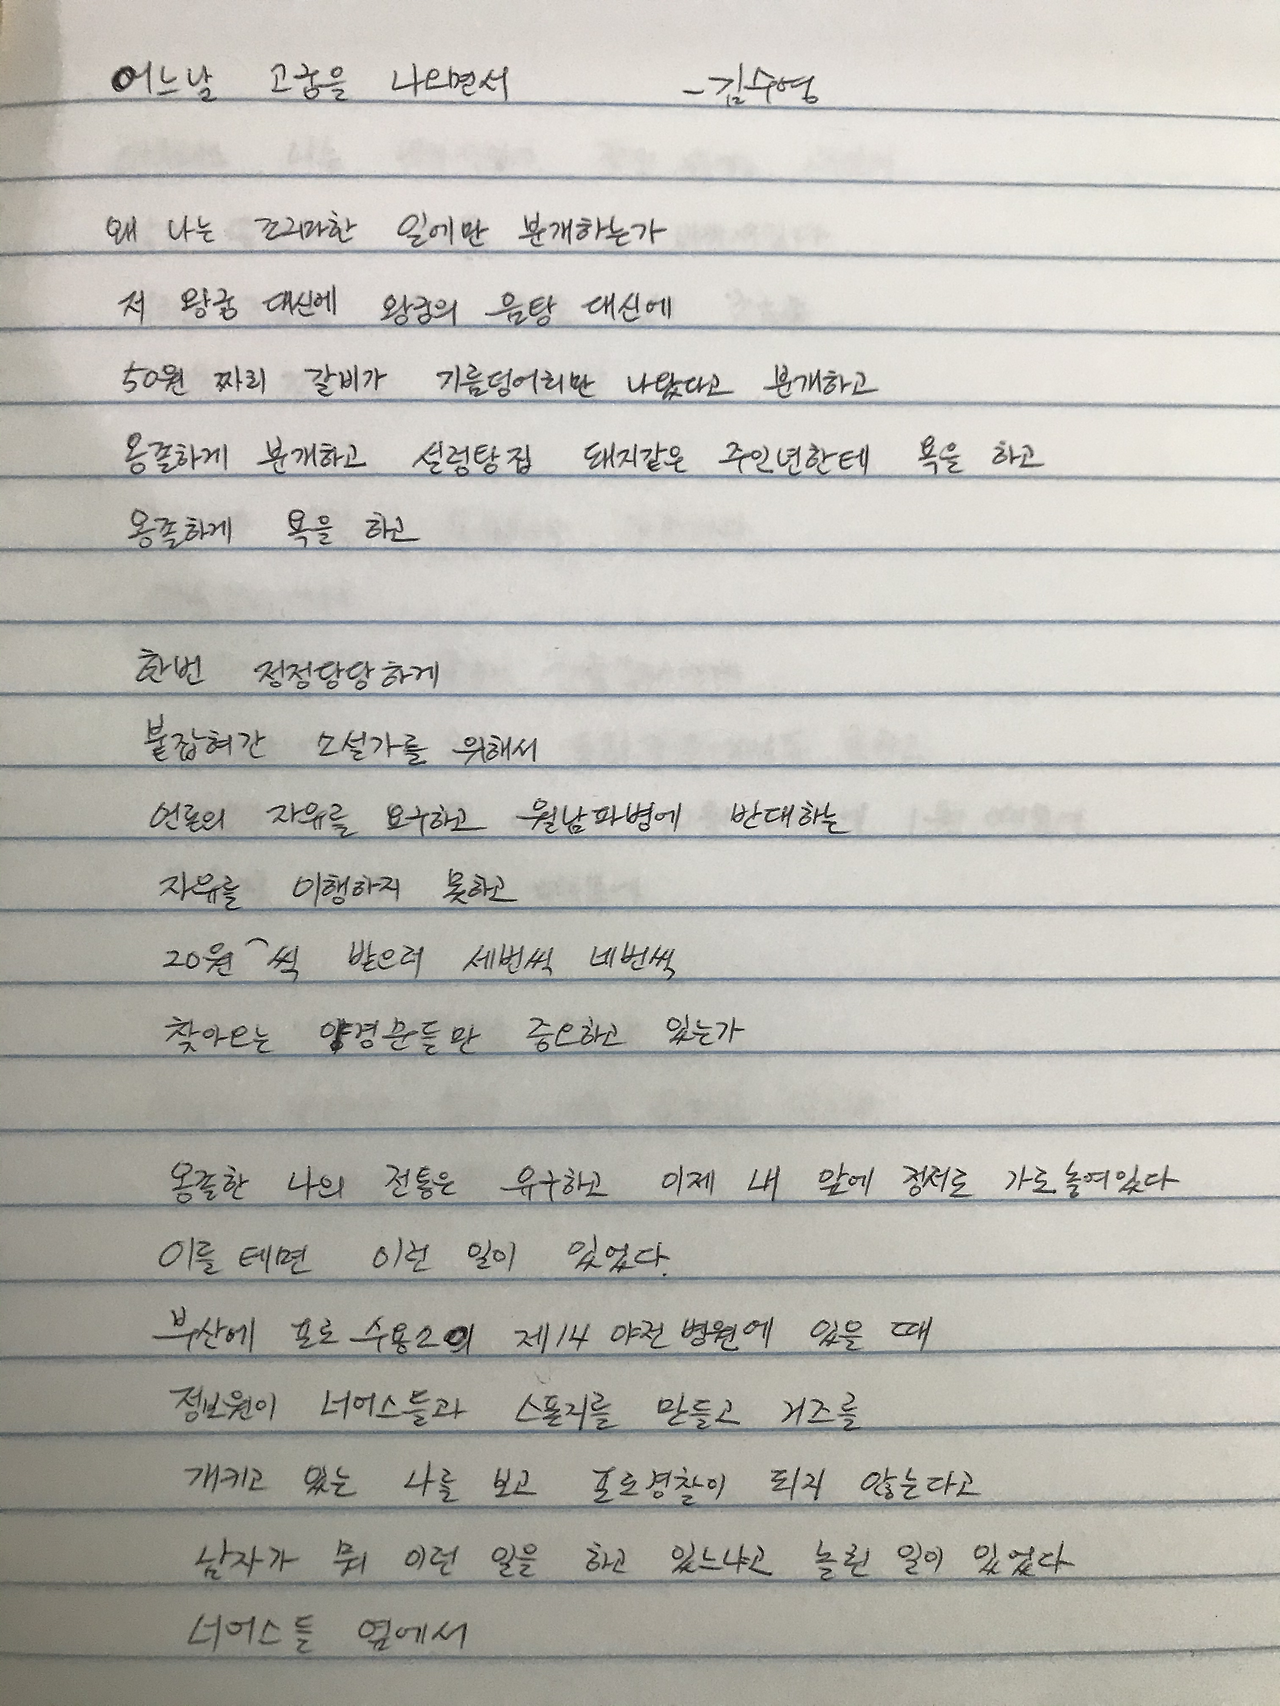 어느날 고궁을 나오면서 -김수영
왜 나는 조그마한 일에만 분개하는가
저 왕궁 대신에 왕궁의 음탕 대신에
50원 짜리 갈비가 기름덩어리만 나왔다고 분개하고
옹졸하게 분개하고 설렁탕집 돼지같은 주인년한테 욕을 하고
옹졸하게 욕을 하고
한번 정정당당하게
붙잡혀간 소설가를 위해서
언론의 자유를 요구하고 월남파병에 반대하는
자유를 이행하지 못하고
20원⌒씩 받으러 세번씩 네번씩
찾아오는 야경꾼들만 증오하고 있는가
옹졸한 나의 전통은 유구하고 이제 내 앞에 정서로 가로놓여있다
이를 테면 이런 일이 있었다.
부산에 포로 수용소의 제14 야전병원에 있을 때
정보원이 너어스들과 스폰지를 만들고 거즈를
개키고 있는 나를 보고 포로경찰이 되지 않는다고
남자가 뭐 이런 일을 하고 있느냐고 놀린 일이 있었다
너어스들 옆에서